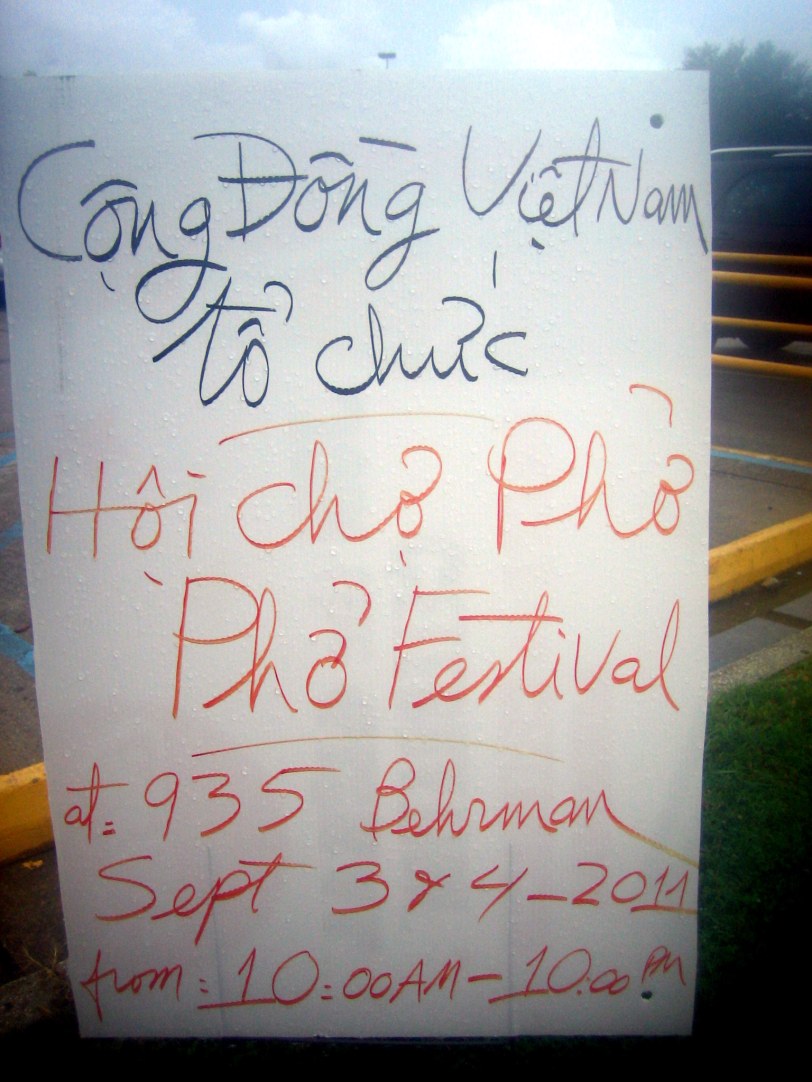 Cộng Đồng Việt Nam
tổ chức
Hội chợ Phở
Phở Festival
at: 935 Behrman
Sept 3 & 4 - 2011
from: 10:00 AM - 10:00 PM